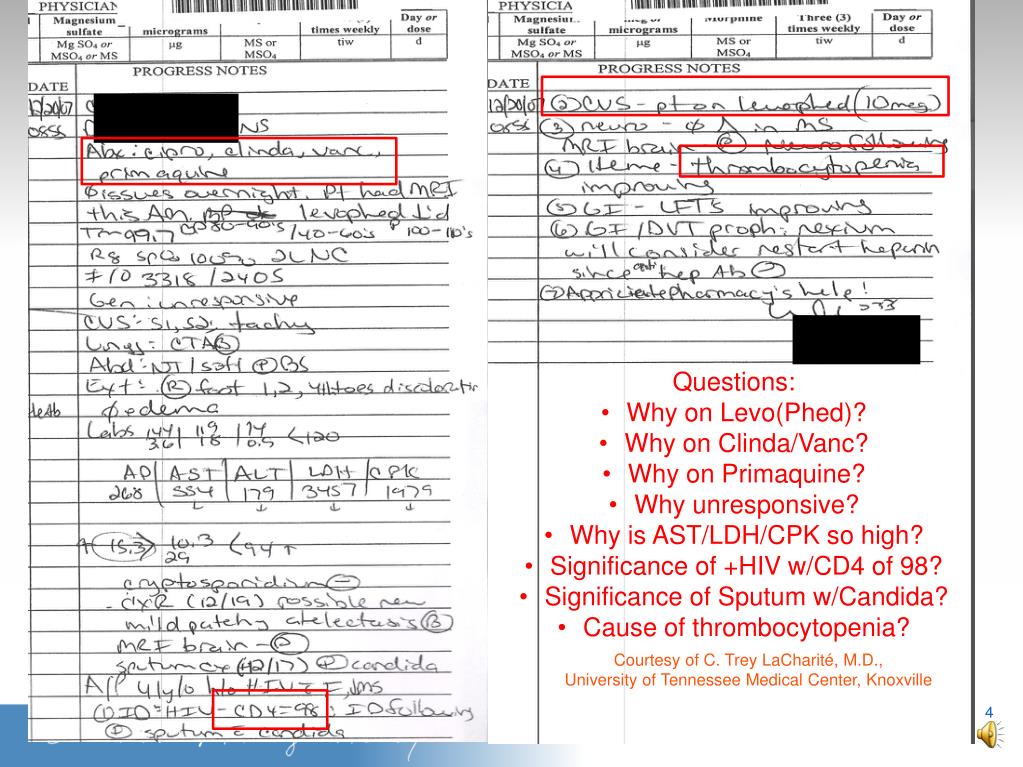 PHYSICIAN
Magnesium
sulfate
micrograms
times weekly
Day or
dose
Mg SO₄ or
MSO₄ or MS
µg
MS or
MSO₄
tiw
d
PROGRESS NOTES
DATE
12/20/07
NS
Abx: cipro, clinda, vanc,
primaquine
Ø issues overnight. Pt had MRI
this AM. levophed
Tm 99.7 80-90's/40-60's P 100-110's
R8 2L NC
I/O 3318/2405
Gen: unresponsive
CVS: S1, S2, tachy
Lungs: CTAB
Abd: NT/soft ⊕BS
Ext: Ⓡ foot 1,2, 4th toes discoloration
Ø edema
Labs 144 119 14 <120
3.6 18 0.5
AP AST ALT LDH CPK
268 354 179 3457 1979
↓ ↓ ↓ ↓
15.3 10.3 <94 ↑
29
cryptosporidium ⊖
- CXR (12/19) possible new
mild patchy atelectasis Ⓑ
MRI brain - ⊖
sputum cx (12/17) ⊕ candida
A/P 41 y/o h/o HIV
① ID - HIV - CD4=98; ID following
⊕ sputum c candida
PHYSICIAN
Magnesium
sulfate
micrograms
Morphine
Three (3)
times weekly
Day or
dose
Mg SO₄ or
MSO₄ or MS
µg
MS or
MSO₄
tiw
d
PROGRESS NOTES
DATE
12/20/07
② CVS - pt on levophed (10mcg)
③ neuro - Ø Δ in MS
MRI brain ⊖ neuro following
④ Heme - thrombocytopenia
improving
⑤ GI - LFT's improving
⑥ GI/DVT proph: nexium
will consider restart heparin
since anti hep Ab ⊖
⑦ Appriciate pharmacy's help!
Questions:
• Why on Levo(Phed)?
• Why on Clinda/Vanc?
• Why on Primaquine?
• Why unresponsive?
• Why is AST/LDH/CPK so high?
• Significance of +HIV w/CD4 of 98?
• Significance of Sputum w/Candida?
• Cause of thrombocytopenia?
Courtesy of C. Trey LaCharité, M.D.,
University of Tennessee Medical Center, Knoxville
4